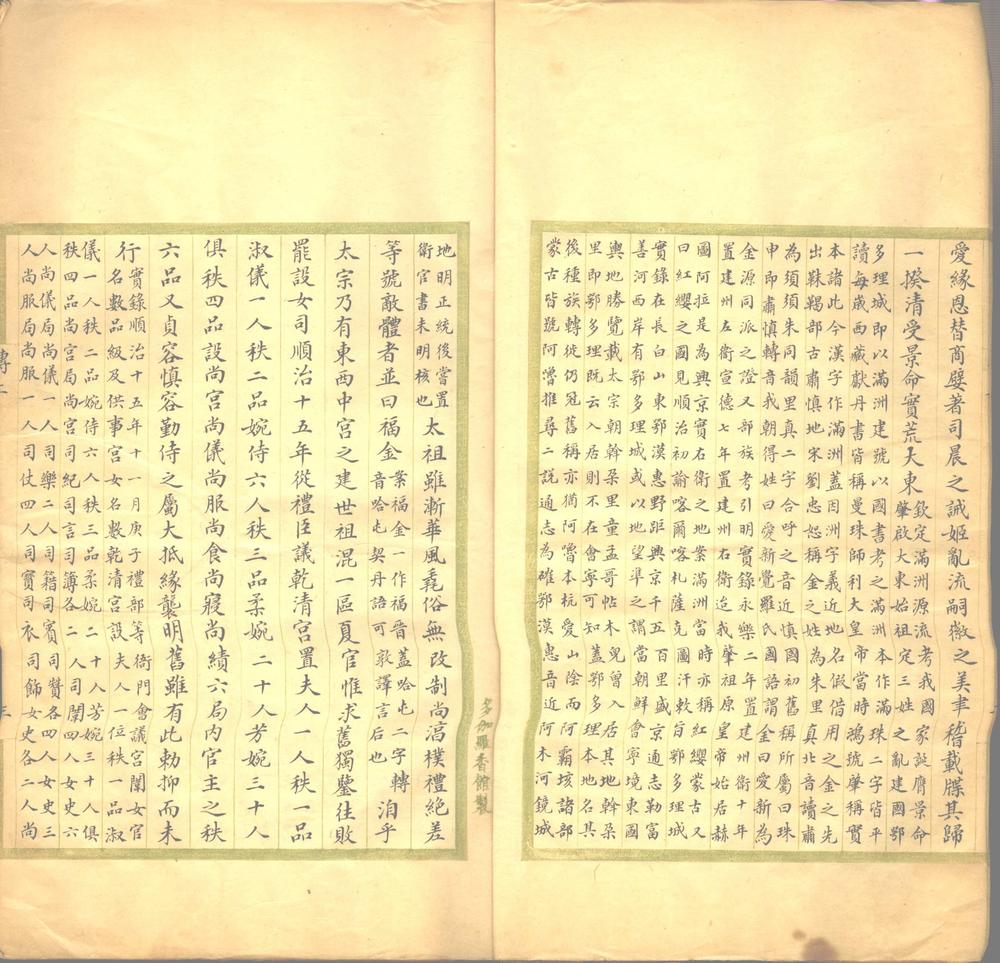 愛緣恩替商嬖著司晨之誡姬亂流嗣徽之美聿稽載牒其歸
一揆清受景命實荒大東
欽定滿洲源流考我國家誕膺景命
肇啟大東始祖定三姓之亂建國鄂
多理城即以滿洲建號以國書考之滿洲本作滿珠二字皆平
讀每歲西藏獻丹書皆稱曼珠師利大皇帝當時鴻號肇稱實
本諸此今漢字作滿洲蓋因洲字義近地名假借用之金之先
出靺鞨部古肅慎地宋劉忠恕稱金之姓為朱里真北音讀肅
為須須朱同韻里真二字合呼之音近慎國初舊稱所屬曰珠
申即肅慎轉音我朝得姓曰愛新覺羅氏國語謂金曰愛新為
金源同派之證又部族考引明實錄永樂二年置建州衛十年
置建州左衛宣德七年置建州右衛迨我肇祖原皇帝始居赫
國阿拉是為興京實右衛之地案滿洲當時亦稱紅纓蒙古又
曰紅纓之國見順治初諭喀爾喀札薩克圖汗敕旨鄂多理城
實錄在長白山東鄂漠惠野距興京千五百里盛京通志勒富
善河西岸有鄂多理城或以地望準之謂當朝鮮會寧境東國
輿地勝覽載太宗朝斡朵里童孟哥帖木兒曾入居其地斡朵
里即鄂多理既云入居則不在會寧可知蓋鄂多理本地名其
後種族轉徙仍冠舊稱亦猶阿嚕本杭愛山陰而阿霸垓諸部
蒙古皆號阿嚕推尋二說通志為確鄂漠惠音近阿木河鏡城
多伽羅香館製
地明正統後嘗置
衛官書未明核也
太祖雖漸華風毳俗無改制尚滈樸禮絕差
等號敵體者並曰福金
案福金一作福晉蓋哈屯二字轉
音哈屯契丹語可敦譯言后也
洎乎
太宗乃有東西中宮之建世祖混一區夏官惟求舊獨鑒往敗
罷設女司順治十五年從禮臣議乾清宮置夫人一人秩一品
淑儀一人秩二品婉侍六人秩三品柔婉二十人芳婉三十人
俱秩四品設尚宮尚儀尚服尚食尚寢尚績六局內官主之秩
六品又貞容慎容勤侍之屬大抵緣襲明舊雖有此勅抑而未
行
實錄順治十五年十一月庚子禮部等衙門會議宮闈女官
名數品級及供事宮女名數乾清宮設夫人一位秩一品淑
儀一人秩二品婉侍六人秩三品柔婉二十人芳婉三十人俱
秩四品尚宮局尚宮司紀司言司簿各二人司闈四人女史六
人尚儀局尚儀一人司樂二人司籍司賓司贊各四人女史三
人尚服局尚服一人司仗四人司寶司衣司飾女史各二人尚